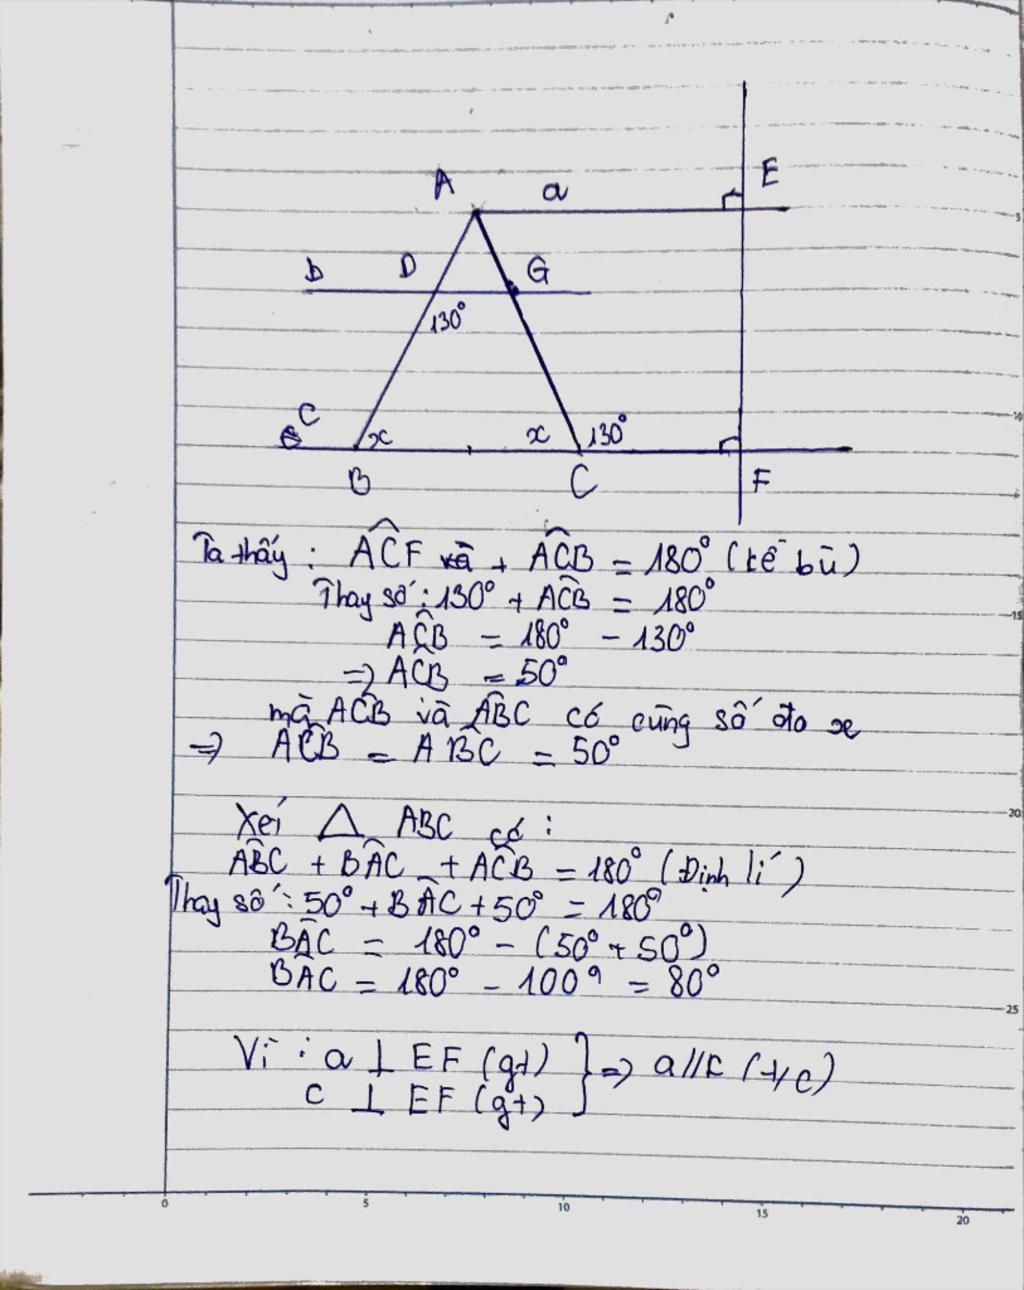 A
a
E
b
D
G
130°
C
x
x
130°
B
C
F
Ta thấy : ACF + ACB = 180° (kề bù)
Thay số : 130° + ACB = 180°
ACB = 180° - 130°
=> ACB = 50°
mà ACB và ABC có cùng số đo x
=> ACB = ABC = 50°
Xét △ ABC có :
ABC + BAC + ACB = 180° (Định lí)
Thay số : 50° + BAC + 50° = 180°
BAC = 180° - (50° + 50°)
BAC = 180° - 100° = 80°
Vì : a ⊥ EF (gt) } => a // c (t/c)
c ⊥ EF (gt)
0 5 10 15 20
5
10
15
20
25